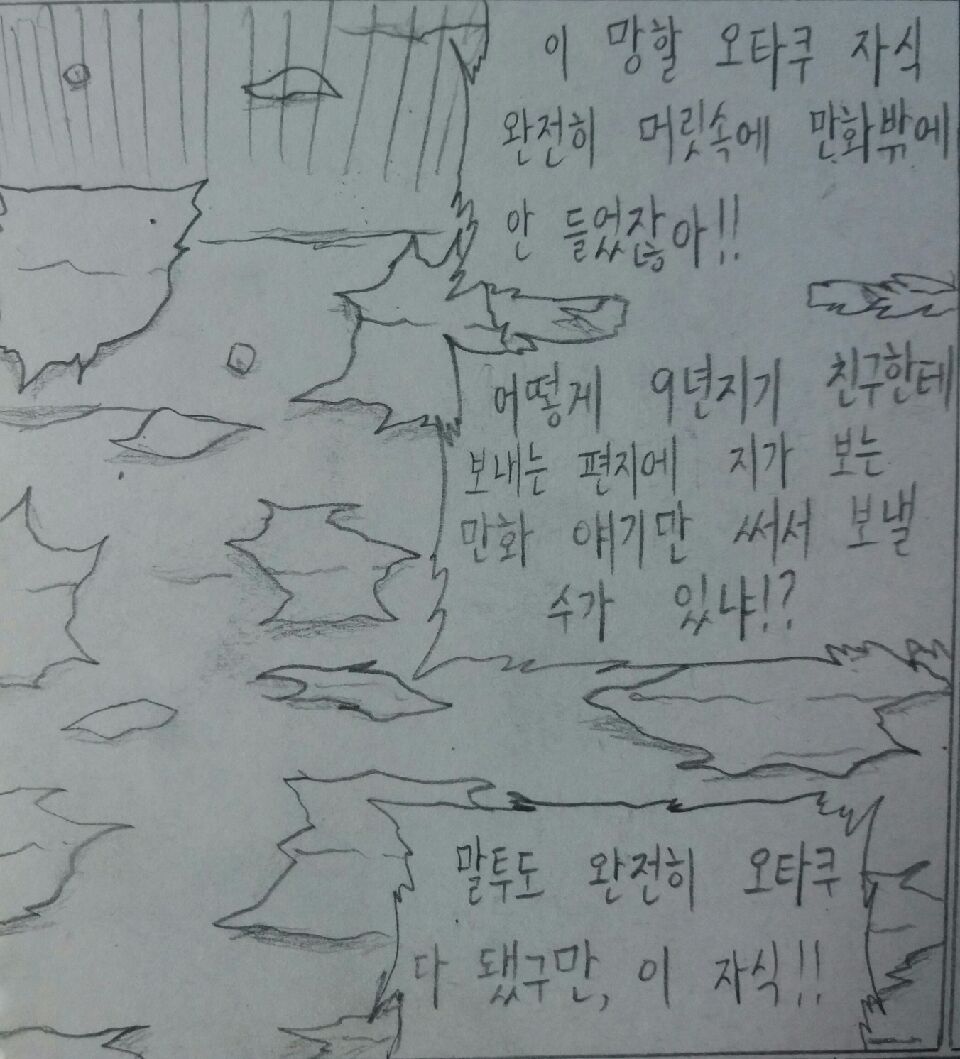 이 망할 오타쿠 자식
완전히 머릿속에 만화밖에
안 들었잖아!!
어떻게 9년지기 친구한테
보내는 편지에 지가 보는
만화 얘기만 써서 보낼
수가 있냐!?
말투도 완전히 오타쿠
다 됐구만, 이 자식!!